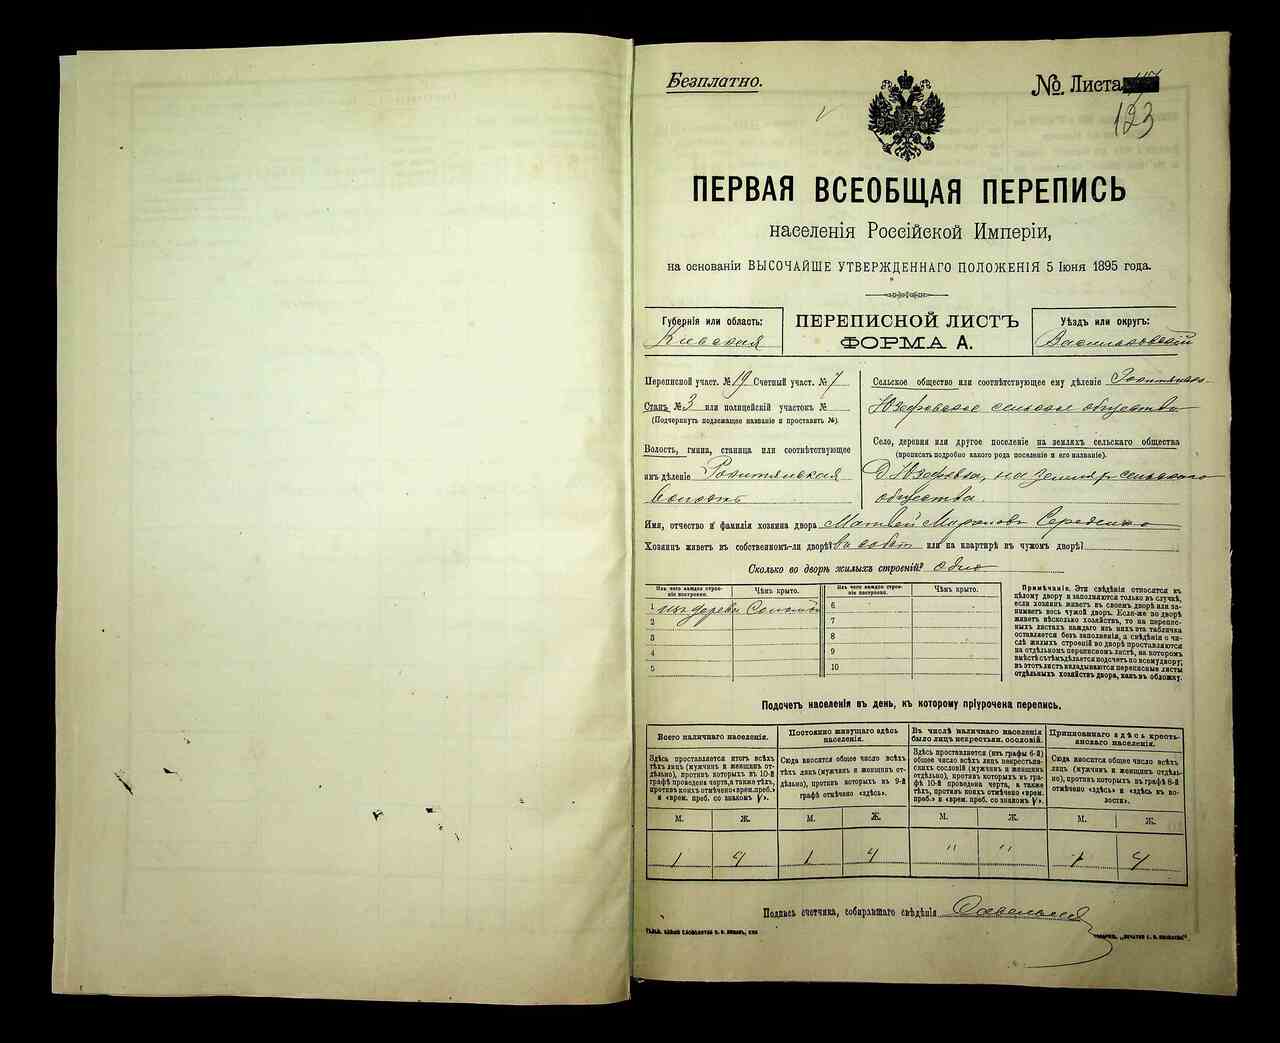 Безплатно.
№ Листа
123
ПЕРВАЯ ВСЕОБЩАЯ ПЕРЕПИСЬ
населенія Россійской Имперіи,
на основаніи ВЫСОЧАЙШЕ УТВЕРЖДЕННАГО ПОЛОЖЕНІЯ 5 Іюня 1895 года.
Губернія или область:
Кіевская
ПЕРЕПИСНОЙ ЛИСТЪ
ФОРМА А.
Уѣздъ или округъ:
Васильковскій
Переписной участ. № 19 Счетный участ. № 7
Станъ № 3 или полицейскій участокъ №
(Подчеркнуть подлежащее названіе и проставить №).
Волость, гмина, станица или соотвѣтствующее
имъ дѣленіе Рокитянская
волость
Сельское общество или соотвѣтствующее ему дѣленіе Рокитянско-
Юзефовское сельское общество
Село, деревня или другое поселеніе на земляхъ сельскаго общества
(прописать подробно какого рода поселеніе и его названіе).
Д. Юзефовка, на земляхъ сельскаго
общества.
Имя, отчество и фамилія хозяина двора Матвей Середенко
Хозяинъ живетъ въ собственномъ-ли дворѣ? въ собст или на квартирѣ въ чужомъ дворѣ?
Сколько во дворѣ жилыхъ строеній? одно
Изъ чего каждое строеніе построено. Чѣмъ крыто. Изъ чего каждое строеніе построено. Чѣмъ крыто.
1 изъ дерева Соломой 6
2 7
3 8
4 9
5 10
Примѣчаніе. Эти свѣдѣнія относятся къ
цѣлому двору и заполняются только въ случаѣ,
если хозяинъ живетъ въ своемъ дворѣ или за-
нимаетъ весь чужой дворъ. Если-же во дворѣ
живетъ нѣсколько хозяйствъ, то на перепис-
ныхъ листахъ каждаго изъ нихъ эта табличка
оставляется безъ заполненія, а свѣдѣнія о чи-
слѣ жилыхъ строеній во дворѣ проставляются
на отдѣльномъ переписномъ листѣ, на которомъ
вмѣстѣ съ тѣмъ дѣлается подсчетъ по всему двору;
въ этотъ листъ вкладываются переписные листы
отдѣльныхъ хозяйствъ двора, какъ въ обложку.
Подсчетъ населенія въ день, къ которому пріурочена перепись.
Всего наличнаго населенія.
Здѣсь проставляется итогъ всѣхъ
тѣхъ лицъ (мужчинъ и женщинъ от-
дѣльно), противъ которыхъ въ 10-й
графѣ проведена черта, а также тѣхъ,
противъ коихъ отмѣчено «врем. преб.»
и «врем. преб. со знакомъ V».
Постоянно живущаго здѣсь
населенія.
Сюда вносится общее число всѣхъ
тѣхъ лицъ (мужчинъ и женщинъ от-
дѣльно), противъ которыхъ въ 9-й
графѣ отмѣчено «здѣсь».
Въ числѣ наличнаго населенія
было лицъ некрестьян. сословій.
Здѣсь проставляется (изъ графы 6-й)
общее число всѣхъ лицъ некрестьян-
скихъ сословій (мужчинъ и женщинъ
отдѣльно), противъ которыхъ въ гра-
фѣ 10-й проведена черта, а также
тѣхъ, противъ коихъ отмѣчено «врем.
преб.» и «врем. преб. со знакомъ V».
Приписаннаго здѣсь кресть-
янскаго населенія.
Сюда вносится общее число всѣхъ
лицъ (мужчинъ и женщинъ отдѣль-
но), противъ которыхъ въ графѣ 8-й
отмѣчено «здѣсь» и «здѣсь въ во-
лости».
М. Ж. М. Ж. М. Ж. М. Ж.
1 4 1 4 " " 1 4
Подпись счетчика, собиравшаго свѣдѣнія